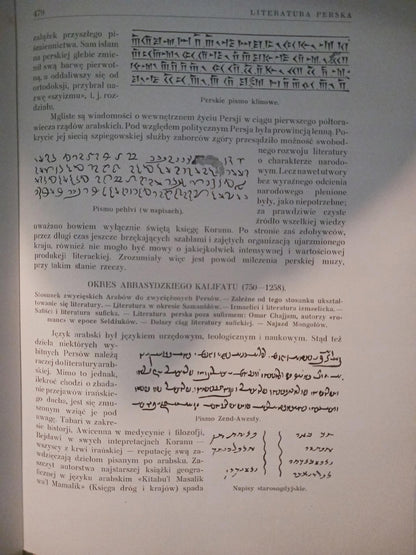 479
LITERATURA PERSKA
związek przyszłego pi-
śmiennictwa. Sam islam
na perskiej glebie zmie-
nił swą barwę pierwot-
ną, a oddaliwszy się od
ortodoksji, przybrał na-
zwę «szyizmu», i. j. roz-
działu.
Perskie pismo klinowe.
Mgliste są wiadomości o wewnętrznem życiu Persji w ciągu pierwszego półtora-
wiecza rządów arabskich. Pod względem politycznym Persja była prowincją lenną. Po-
krycie jej siecią szpiegowskiej służby zaborców zgóry przesądziło możność swobod-
nego rozwoju literatury
o charakterze narodo-
wym. Lecz nawet utwory
bez wyraźnego odcienia
narodowego plenione
były, jako niepotrzebne;
za prawdziwe czyste
źródło wszelkiej wiedzy
Pismo pehlvi (w napisach).
uważano bowiem wyłącznie świętą księgę Koranu. Po stronie zaś zdobywców,
przez długi czas jeszcze brzękających szablami i zajętych organizacją ujarzmionego
kraju, również nie mogło być mowy o jakiejkolwiek intensywnej i wartościowej
produkcji literackiej. Zrozumiały więc jest powód milczenia perskiej muzy,
przy takim stanie rzeczy.
OKRES ABBASYDZKIEGO KALIFATU (750—1258).
Stosunek zwycięskich Arabów do zwyciężonych Persów. — Zależne od tego stosunku ukształ-
towanie się literatury. — Literatura w okresie Samanidów. — Izmaelici i literatura izmaelicka. —
Sufiści i literatura suficka. — Literatura perska poza sufizmem: Omar Chajjam, autorzy ro-
mancs w epoce Seldżuków. — Dalszy ciąg literatury sufickiej. — Najazd Mongołów.
Język arabski był językiem urzędowym, teologicznym i naukowym. Stąd też
dzieła niektórych wy-
bitnych Persów należą
raczej do literatury arab-
skiej. Mimo to jednak,
ilekroć chodzi o zbada-
nie przejawów irańskie-
go ducha, jest się zmu-
szonym wziąć je pod
uwagę. Tabari w zakre-
sie historji, Awicenna w medycynie i filozofji,
Bejdawi w swych intepretacjach Koranu —
wszyscy z krwi irańskiej — reputację swą za-
wdzięczają dziełom pisanym po arabsku. Za-
szczyt autorstwa najstarszej książki geogra-
ficznej w języku arabskim «Kitabu'l Masalik
wa'l Mamalik» (Księga dróg i krajów) spada
Pismo Zend-Awesty.
Napisy starosogdyjskie.